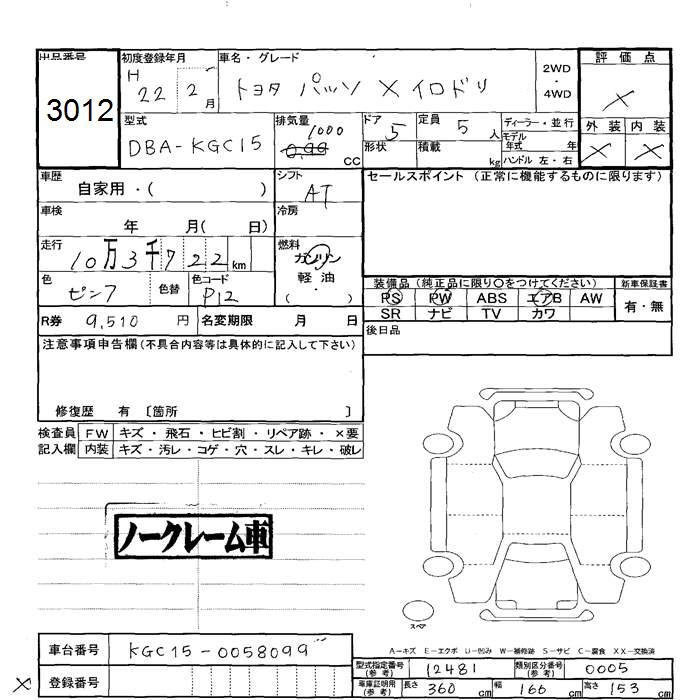 出品番号 初度登録年月 車名・グレード 評価点
3012
H 22年 2月
トヨタ パッソ X イロドリ
2WD・4WD
×
型式 排気量 ドア 定員 ディーラー・並行 外装 内装
DBA-KGC15 1000 0.99 CC 5 5人
モデル年式 年
形状 積載 kg ハンドル 左・右
× ×
車歴 自家用・( ) シフト AT
セールスポイント (正常に機能するものに限ります)
車検 年 月( 日) 冷房
走行 10万3千722km
燃料 ガソリン 軽油 ・( )
色 ピンク 色替 色コード P12
装備品 (純正品に限り○をつけてください) 新車保証書
PS PW ABS エアB AW 有・無
SR ナビ TV カワ
R券 9,510円 名変期限 月 日
後日品
注意事項申告欄(不具合内容等は具体的に記入して下さい)
修復歴 有 〔箇所 〕
検査員 FW キズ・飛石・ヒビ割・リペア跡・×要
記入欄 内装 キズ・汚レ・コゲ・穴・スレ・キレ・破レ
ノークレーム車
スペア
A-キズ E-エクボ U-凹み W-補修跡 S-サビ C-腐食 XX-交換済
車台番号 KGC15-0058099
型式指定番号(参考) 12481 類別区分番号(参考) 0005
× 登録番号
車庫証明用(参考) 長さ 360cm 幅 166cm 高さ 153cm